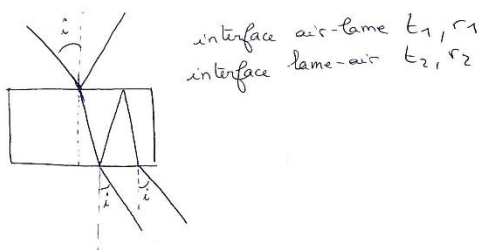 i
interface air-lame t₁, r₁
interface lame-air t₂, r₂
i
i